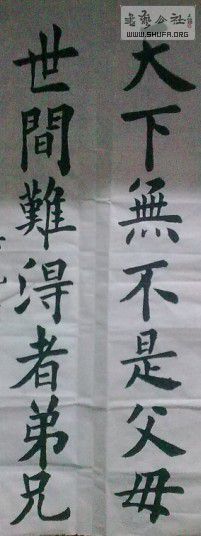 書藝公社
WWW.SHUFA.ORG
天下無不是父母
世間難得者弟兄